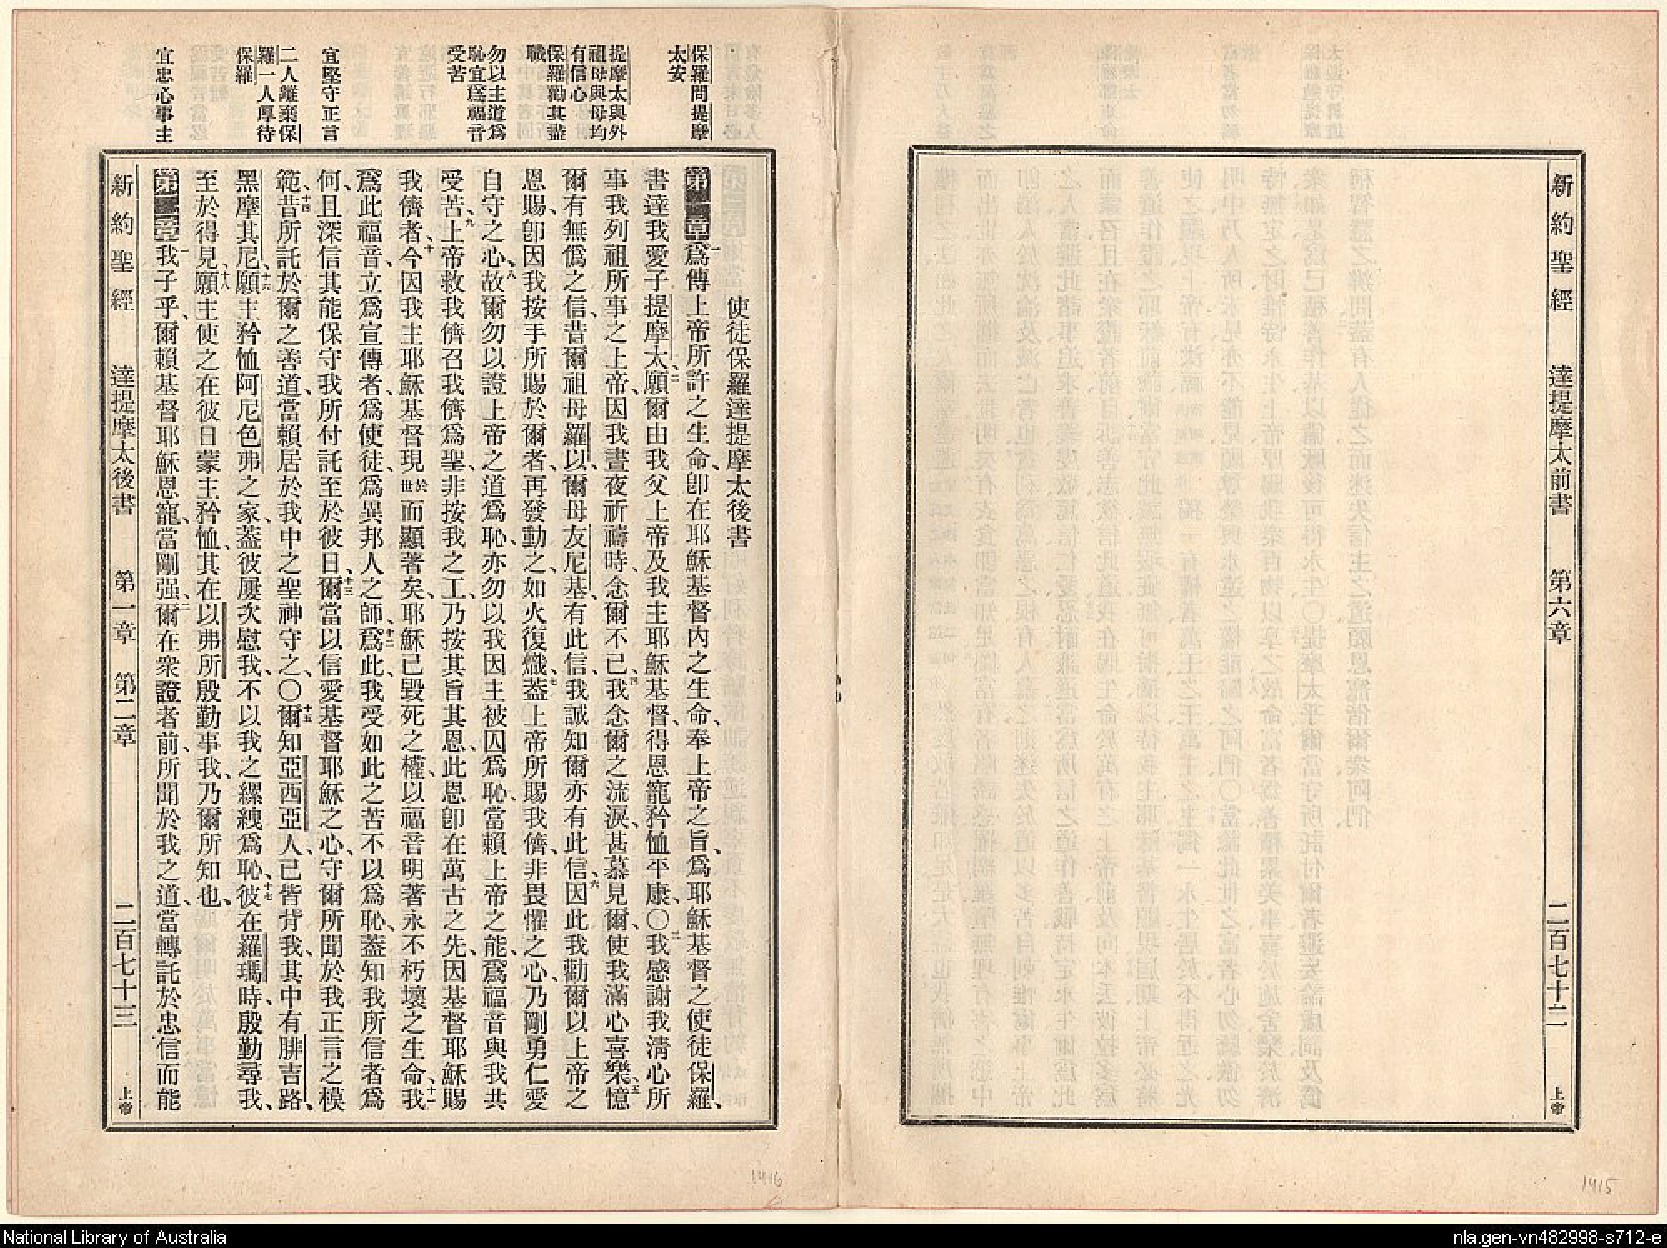 新約聖經 達提摩太前書 第六章 二百七十二 上帝
使徒保羅達提摩太後書
第一章爲傳上帝所許之生命、卽在耶穌基督內之生命、奉上帝之旨、爲耶穌基督之使徒保羅、
書達我愛子提摩太、二願爾由我父上帝及我主耶穌基督、得恩寵矜恤平康、〇三我感謝我淸心所
事我列祖所事之上帝、因我晝夜祈禱時、念爾不已、四我念爾之流淚、甚慕見爾、使我滿心喜樂、五憶
爾有無僞之信、昔爾祖母羅以、爾母友尼基有此信、我誠知爾亦有此信、六因此我勸爾以上帝之
恩賜、卽因我按手所賜於爾者、再發動之、如火復熾、七蓋上帝所賜我儕、非畏懼之心、乃剛勇仁愛
自守之心、八故爾勿以證上帝之道爲恥、亦勿以我因主被囚爲恥、當賴上帝之能、爲福音與我共
受苦、九上帝救我儕召我儕爲聖、非按我之工、乃按其旨其恩、此恩卽在萬古之先、因基督耶穌賜
我儕者、十今因我主耶穌基督現於世而顯著矣、耶穌已毀死之權、以福音明著永不朽壞之生命、十一我
爲此福音、立爲宣傳者、爲使徒、爲異邦人之師、十二爲此、我受如此之苦、不以爲恥、蓋知我所信者爲
何、且深信其能保守我所付託至於彼日、十三爾當以信愛基督耶穌之心、守爾所聞於我正言之模
範、十四昔所託於爾之善道、當賴居於我中之聖神守之、〇十五爾知亞西亞人已皆背我、其中有腓吉路、
黑摩其尼、十六願主矜恤阿尼色弗之家、蓋彼屢次慰我、不以我之縲絏爲恥、十七彼在羅瑪時、殷勤尋我、
至於得見、十八願主使之在彼日蒙主矜恤、其在以弗所殷勤事我、乃爾所知也、
第二章一我子乎、爾賴基督耶穌恩寵、當剛强、二爾在衆證者前、所聞於我之道、當轉託於忠信而能
新約聖經 達提摩太後書 第一章 第二章 二百七十三 上帝
保羅問提摩
太安
提摩太與外
祖母與母均
有信心
保羅勸其盡
職
勿以主道爲
恥宜爲福音
受苦
宜堅守正言
二人離棄保
羅一人厚待
保羅
宜忠心事主
1416
1415
National Library of Australia
nla.gen-vn482998-s712-e